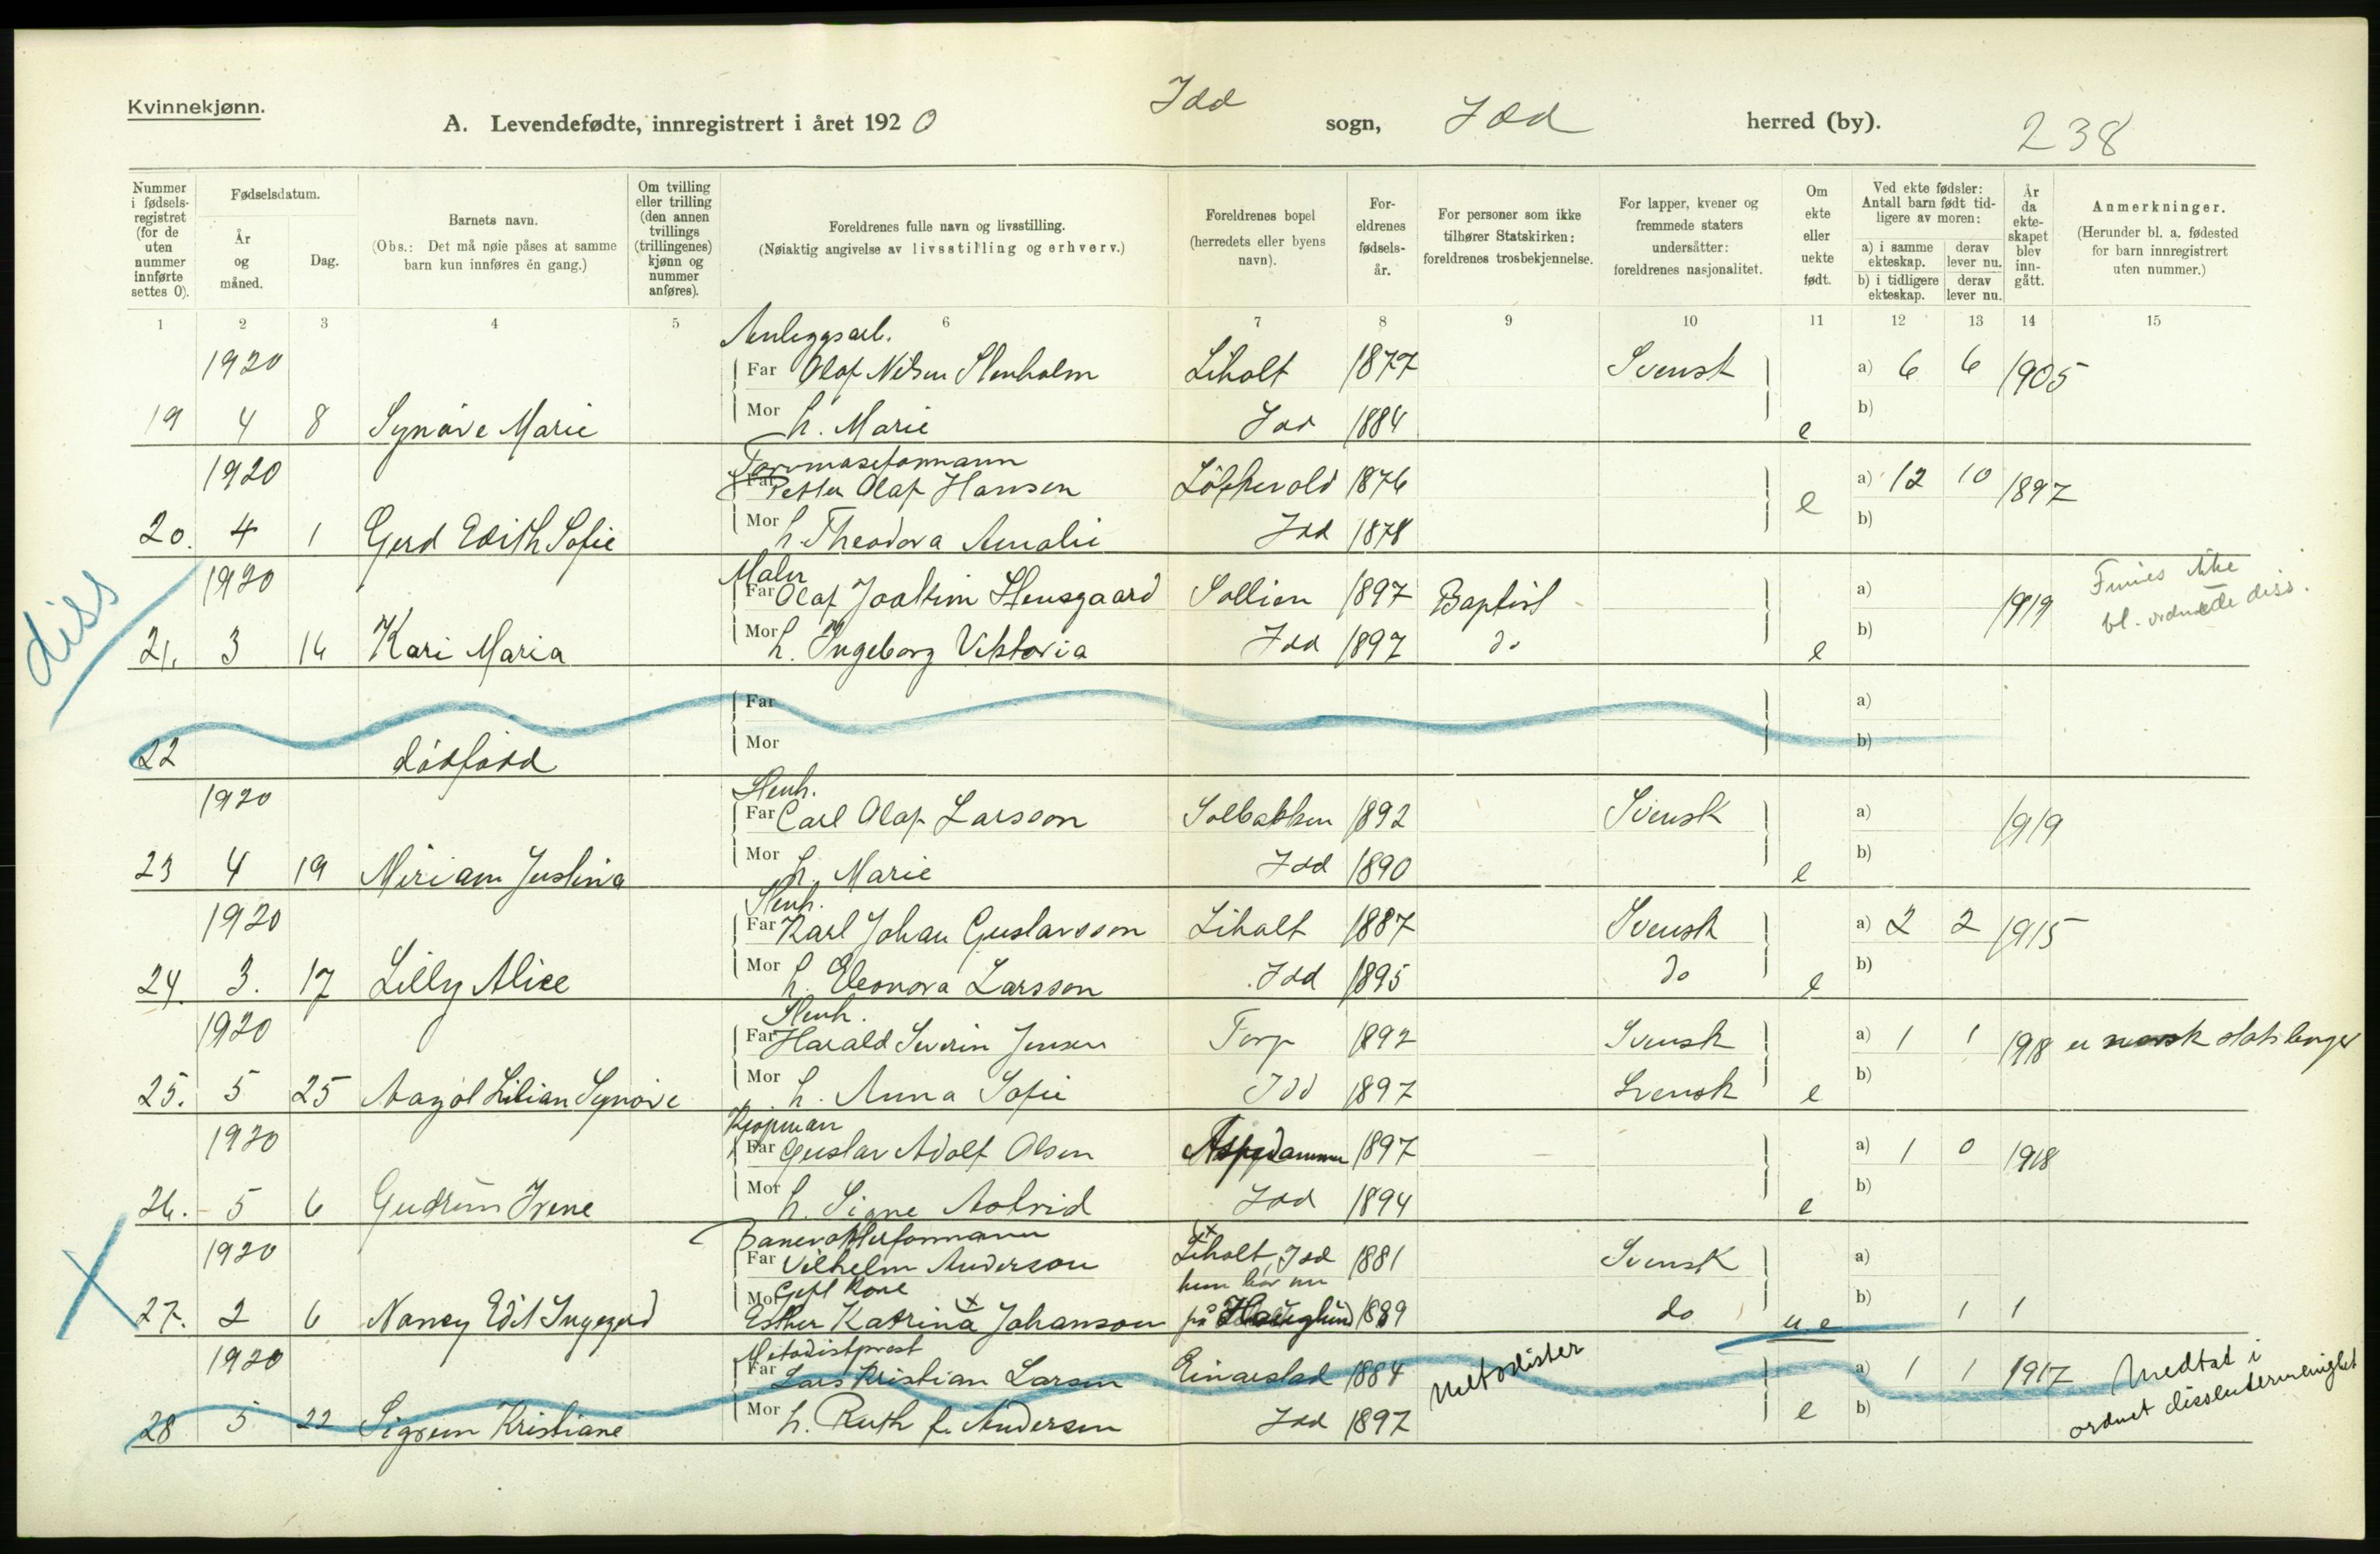 Kvinnekjønn.
A. Levendefødte, innregistrert i året 1920 Idd sogn, Idd herred (by). 238
Nummer i fødsels-registret (for de uten nummer innførte settes 0).
Fødselsdatum.
År og måned.
Dag.
Barnets navn.
(Obs.: Det må nøie påses at samme barn kun innføres én gang.)
Om tvilling eller trilling (den annen tvillings (trillingenes) kjønn og nummer anføres).
Foreldrenes fulle navn og livsstilling.
(Nøiaktig angivelse av livsstilling og erhverv.)
Foreldrenes bopel (herredets eller byens navn).
For-eldrenes fødsels-år.
For personer som ikke tilhører Statskirken: foreldrenes trosbekjennelse.
For lapper, kvener og fremmede staters undersåtter: foreldrenes nasjonalitet.
Om ekte eller uekte født.
Ved ekte fødsler: Antall barn født tid-ligere av moren:
a) i samme ekteskap. derav lever nu.
b) i tidligere ekteskap. derav lever nu.
År da ekte-skapet blev inn-gått.
Anmerkninger.
(Herunder bl. a. fødested for barn innregistrert uten nummer.)
1 2 3 4 5 6 7 8 9 10 11 12 13 14 15
Anleggsarb.
1920 Far Olaf Nilsen Stenholm Liholt 1877 Svensk a) 6 6 1905
19 4 8 Synöve Marie Mor h. Marie Idd 1884 e b)
Torvmaseformann
1920 Far Petter Olaf Hansen 1876 a) 12 10 1897
20. 4 1 Gerd Edith Sofie Mor h. Theodora Amalie Idd 1878 e b)
Maler
1920 Far Olaf Joakim Stensgaard Sollien 1897 Baptist a) 1919 Finnes ikke
diss
21. 3 14 Kari Maria Mor h. Ingeborg Viktoria Idd 1897 do e b) bl. ordnede diss.
Far a)
22 dødfødd Mor b)
Stenh.
1920 Far Carl Olaf Larsson Solbakken 1892 Svensk a) 1919
23 4 19 Miriam Justina Mor h. Marie Idd 1890 e b)
Stenh.
1920 Far Karl Johan Gustavsson Liholt 1887 Svensk a) 2 2 1915
24. 3. 17 Lilly Alice Mor h. Eleonora Larsson Idd 1895 do e b)
Stenh.
1920 Far Harald Severin Jensen Torp 1892 Svensk a) 1 1 1918 er norsk statsborger
25. 5 25 Aagot Lilian Synöve Mor h. Anna Sofie Idd 1897 Svensk e b)
Kjøpman
1920 Far Gustav Adolf Olsen Aspedammen 1897 a) 1 0 1918
26. 5 6 Gudrun Irene Mor h. Signe Astrid Idd 1894 e b)
Banevokterformann
1920 Far Vilhelm Anderson Liholt, Idd 1881 Svensk a)
Gift Kone hun bor nu
27. 2 6 Nancy Edit Ingegerd Mor Esther Katrina Johanson på 1889 do u e b) 1 1
Metodistprest
1920 Far Lars Kristian Larsen Einarstad 1884 Metodister a) 1 1 1917 Medtat i
28 5 22 Sigrun Kristiane Mor h. Ruth f. Andersen Idd 1897 e b) ordnet dissentermenighet